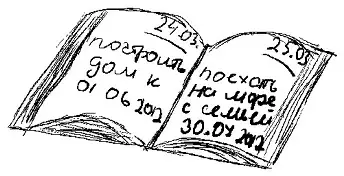 24.03.
построить
дом к
01 06 2012
23.03
поехать
на море
с семьей
30.07 2012